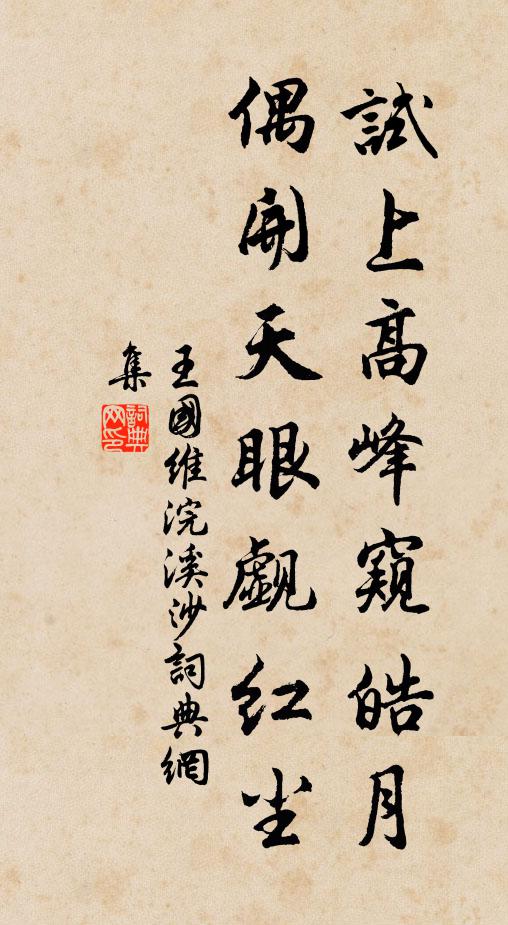 試上高峰窺皓月
偶開天眼覷紅尘
王國維浣溪沙詞典網
集
詞典网印